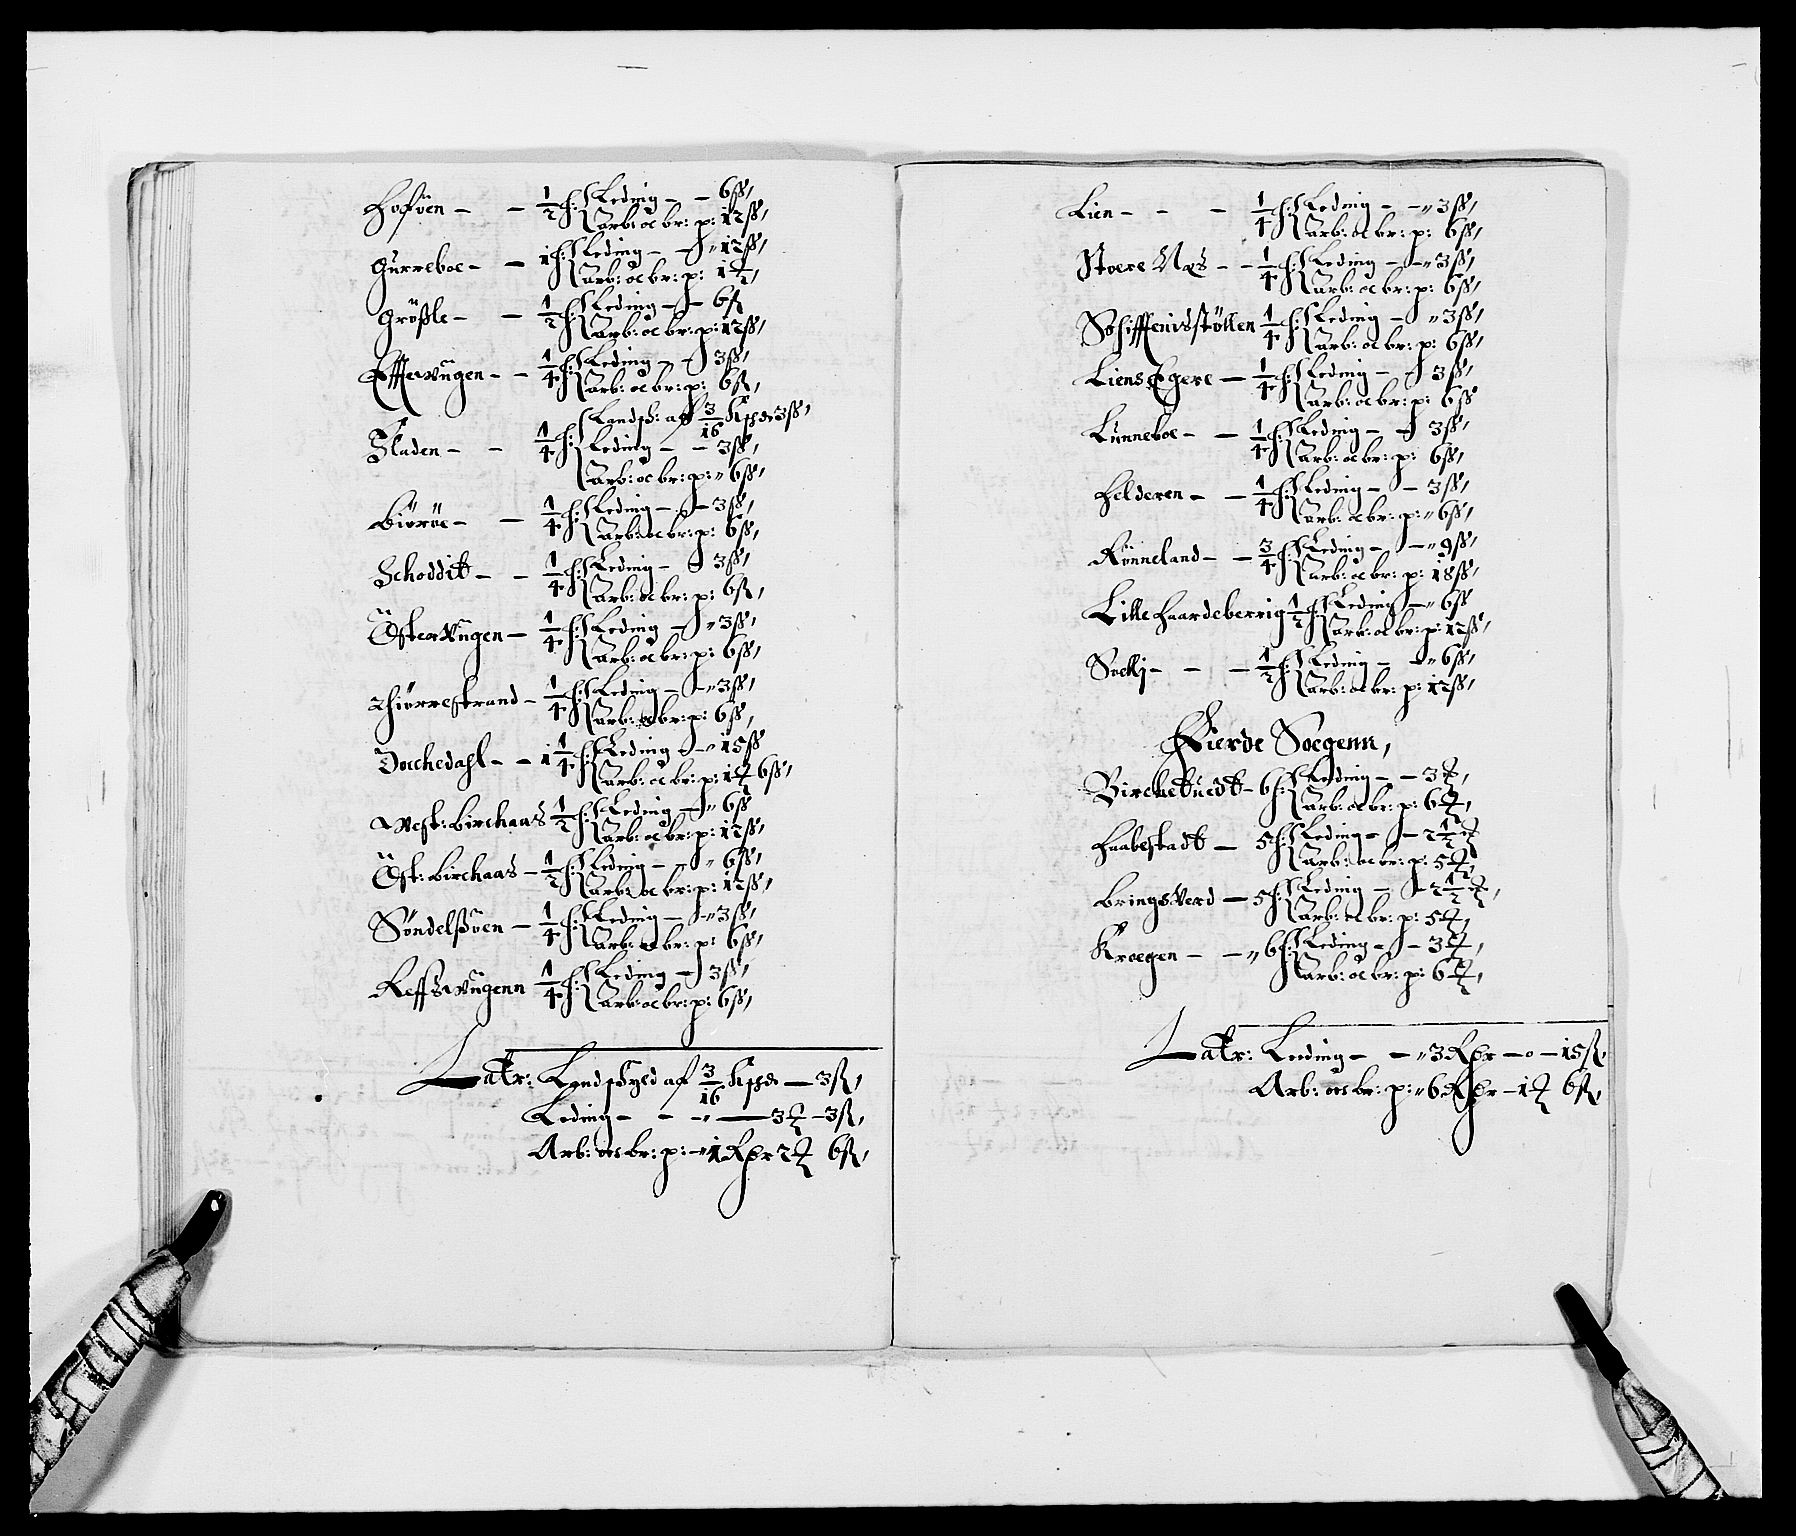 Hofven - - 1/2 h: Leding - - 6 ß,
Arb: oc br: p: 12 ß,
Gurreboe - - 1 h: Leding - - „ 12 ß,
Arb: oc br: p: 1 ꝶ,
Größle - - 1/2 h: Leding - - 6 ß
Arb: oc br: p: 12 ß,
Effervugen - - 1/4 h: Leding - - 3 ß,
Arb: oc br: p: 6 ß,
Landsk: af 3/16 Kpd 3 ß,
Sladen - - 1/4 h: Leding - - 3 ß,
Arb: oc br: p: „ 6 ß,
Biöröe - - 1/4 h: Leding - - 3 ß,
Arb: oc br: p: 6 ß,
Schoddit - - 1/4 h: Leding - - 3 ß,
Arb: oc br: p: 6 ß,
Östervugen - 1/4 h: Leding - „ 3 ß,
Arb: oc br: p: 6 ß,
Thiörrestrand - 1/4 h: Leding - „ 3 ß,
Arb: oc br: p: 6 ß,
Dochedahl - - 1 1/4 h: Leding - „ 15 ß
Arb: oc br: p: 1 ꝶ 6 ß,
West: Birchaas 1/2 h: Leding - „ 6 ß
Arb: oc br: p: 12 ß,
Öst: Birchaas - 1/2 h: Leding - „ 6 ß,
Arb: oc br: p: 12 ß,
Söndelßöen - 1/4 h: Leding - „ 3 ß,
Arb: oc br: p: 6 ß,
Reffsvugenn 1/4 h: Leding - 3 ß,
Arb: oc br: p: 6 ß,
Latr: Landskyld af 3/16 Kpd - 3 ß,
Leding - - „ - 3 ꝶ - 3 ß,
Arb: oc br: p: - 1 Rdr 2 ꝶ 6 ß,
Lien - - - 1/4 h: Leding - - „ 3 ß,
Arb: oc br: p: 6 ß,
Stoere Næs - - 1/4 h: Leding - - „ 3 ß,
Arb: oc br: p: 6 ß,
Schifftenisstöllen 1/4 h: Leding - „ 3 ß,
Arb: oc br: p: 6 ß,
Liens Egere - 1/4 h: Leding - 3 ß,
Arb: oc br: p: 6 ß
Lunneboe - - 1/4 h: Leding - 3 ß,
Arb: oc br: p: 6 ß,
Helderen - - 1/4 h: Leding - - 3 ß,
Arb: oc br: p: „ 6 ß,
Rönneland - - 3/4 h: Leding - - „ 9 ß,
Arb: oc br: p: 18 ß,
Lille Haardeberrig 1/2 h: Leding - „ 6 ß
Arb: oc br: p: 12 ß,
Sochj - - - 1/2 h: Leding - - „ 6 ß,
Arb: oc br: p: 12 ß,
Fierde Soegenn,
Birchetuedt - 6 h: Leding - - 3 ꝶ,
Arb: oc br: p: 6 ꝶ,
Haabestadt - 5 h: Leding - - 2 1/2 ꝶ
Arb: oc br: p: 5 ꝶ,
Bringsverd - 5 h: Leding - - 2 1/2 ꝶ,
Arb: oc br: p: 5 ꝶ,
Kroegen - - „ 6 h: Leding - - 3 ꝶ,
Arb: oc br: p: 6 ꝶ,
Latr: Leeding - - „ 3 Rdr - o - 15 ß,
Arb: oc br: p: „ 6 Rdr - 1 ꝶ 6 ß,